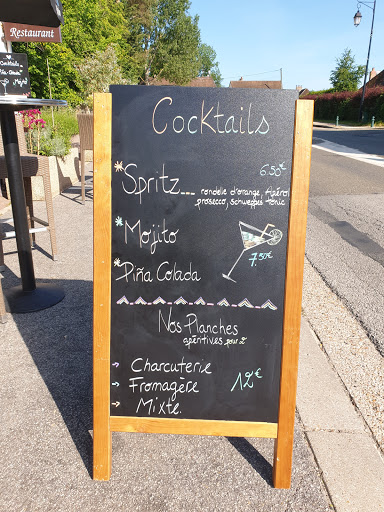 Restaurant
Cocktails
Cocktails
Spritz___ 6.50€
rondelle d'orange, Apérol
prosecco, schweppes tonic
Mojito
7.50€
Piña Colada
Nos Planches
apéritives pour 2
→ Charcuterie
→ Fromagère 12€
→ Mixte.